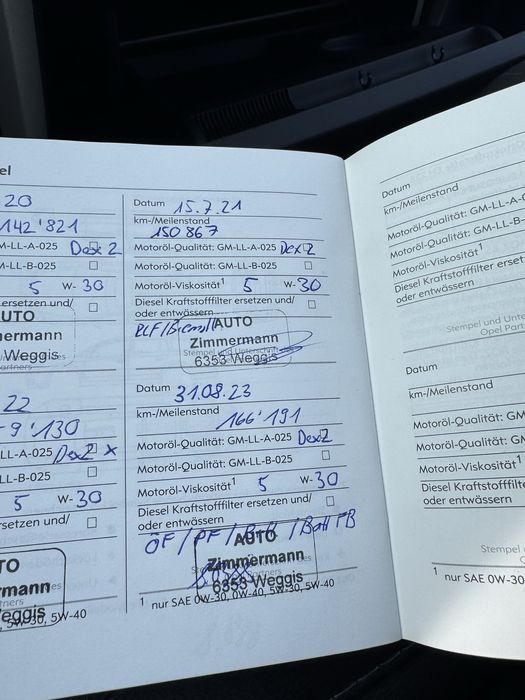 el
20
142'821
M-LL-A-025 Dex 2
M-LL-B-025
5 W-30
ersetzen und/
UTO
ermann
Weggis
artners
22
9'130
LL-A-025 Dex2 x
LL-B-025
5 W-30
rsetzen und/
TO
rmann
eggis
, 5W-30, 5W-40
Datum 15.7.21
km-/Meilenstand
150 867
Motoröl-Qualität: GM-LL-A-025 Dex2
Motoröl-Qualität: GM-LL-B-025
Motoröl-Viskosität¹ 5 W-30
Diesel Kraftstofffilter ersetzen und/
oder entwässern
AUTO
Zimmermann
Stempel und Unterschrift
6353 Weggis
Datum 31.08.23
km-/Meilenstand
166'191
Motoröl-Qualität: GM-LL-A-025 Dex2
Motoröl-Qualität: GM-LL-B-025
Motoröl-Viskosität¹ 5 W-30
Diesel Kraftstofffilter ersetzen und/
oder entwässern
ÖF / PF / / Batt FB
AUTO
Zimmermann
6353 Weggis
¹ nur SAE 0W-30, 0W-40, 5W-30, 5W-40
Datum
km-/Meilenstand
Motoröl-Qualität: GM-LL-A-0
Motoröl-Qualität: GM-LL-B-
Motoröl-Viskosität¹
Diesel Kraftstofffilter ersetzen
oder entwässern
Stempel und Unte
Opel Part
Datum
km-/Meilenstand
Motoröl-Qualität: GM-
Motoröl-Qualität: GM
Motoröl-Viskosität¹
Diesel Kraftstofffilter
oder entwässern
Stempel
¹ nur SAE 0W-30